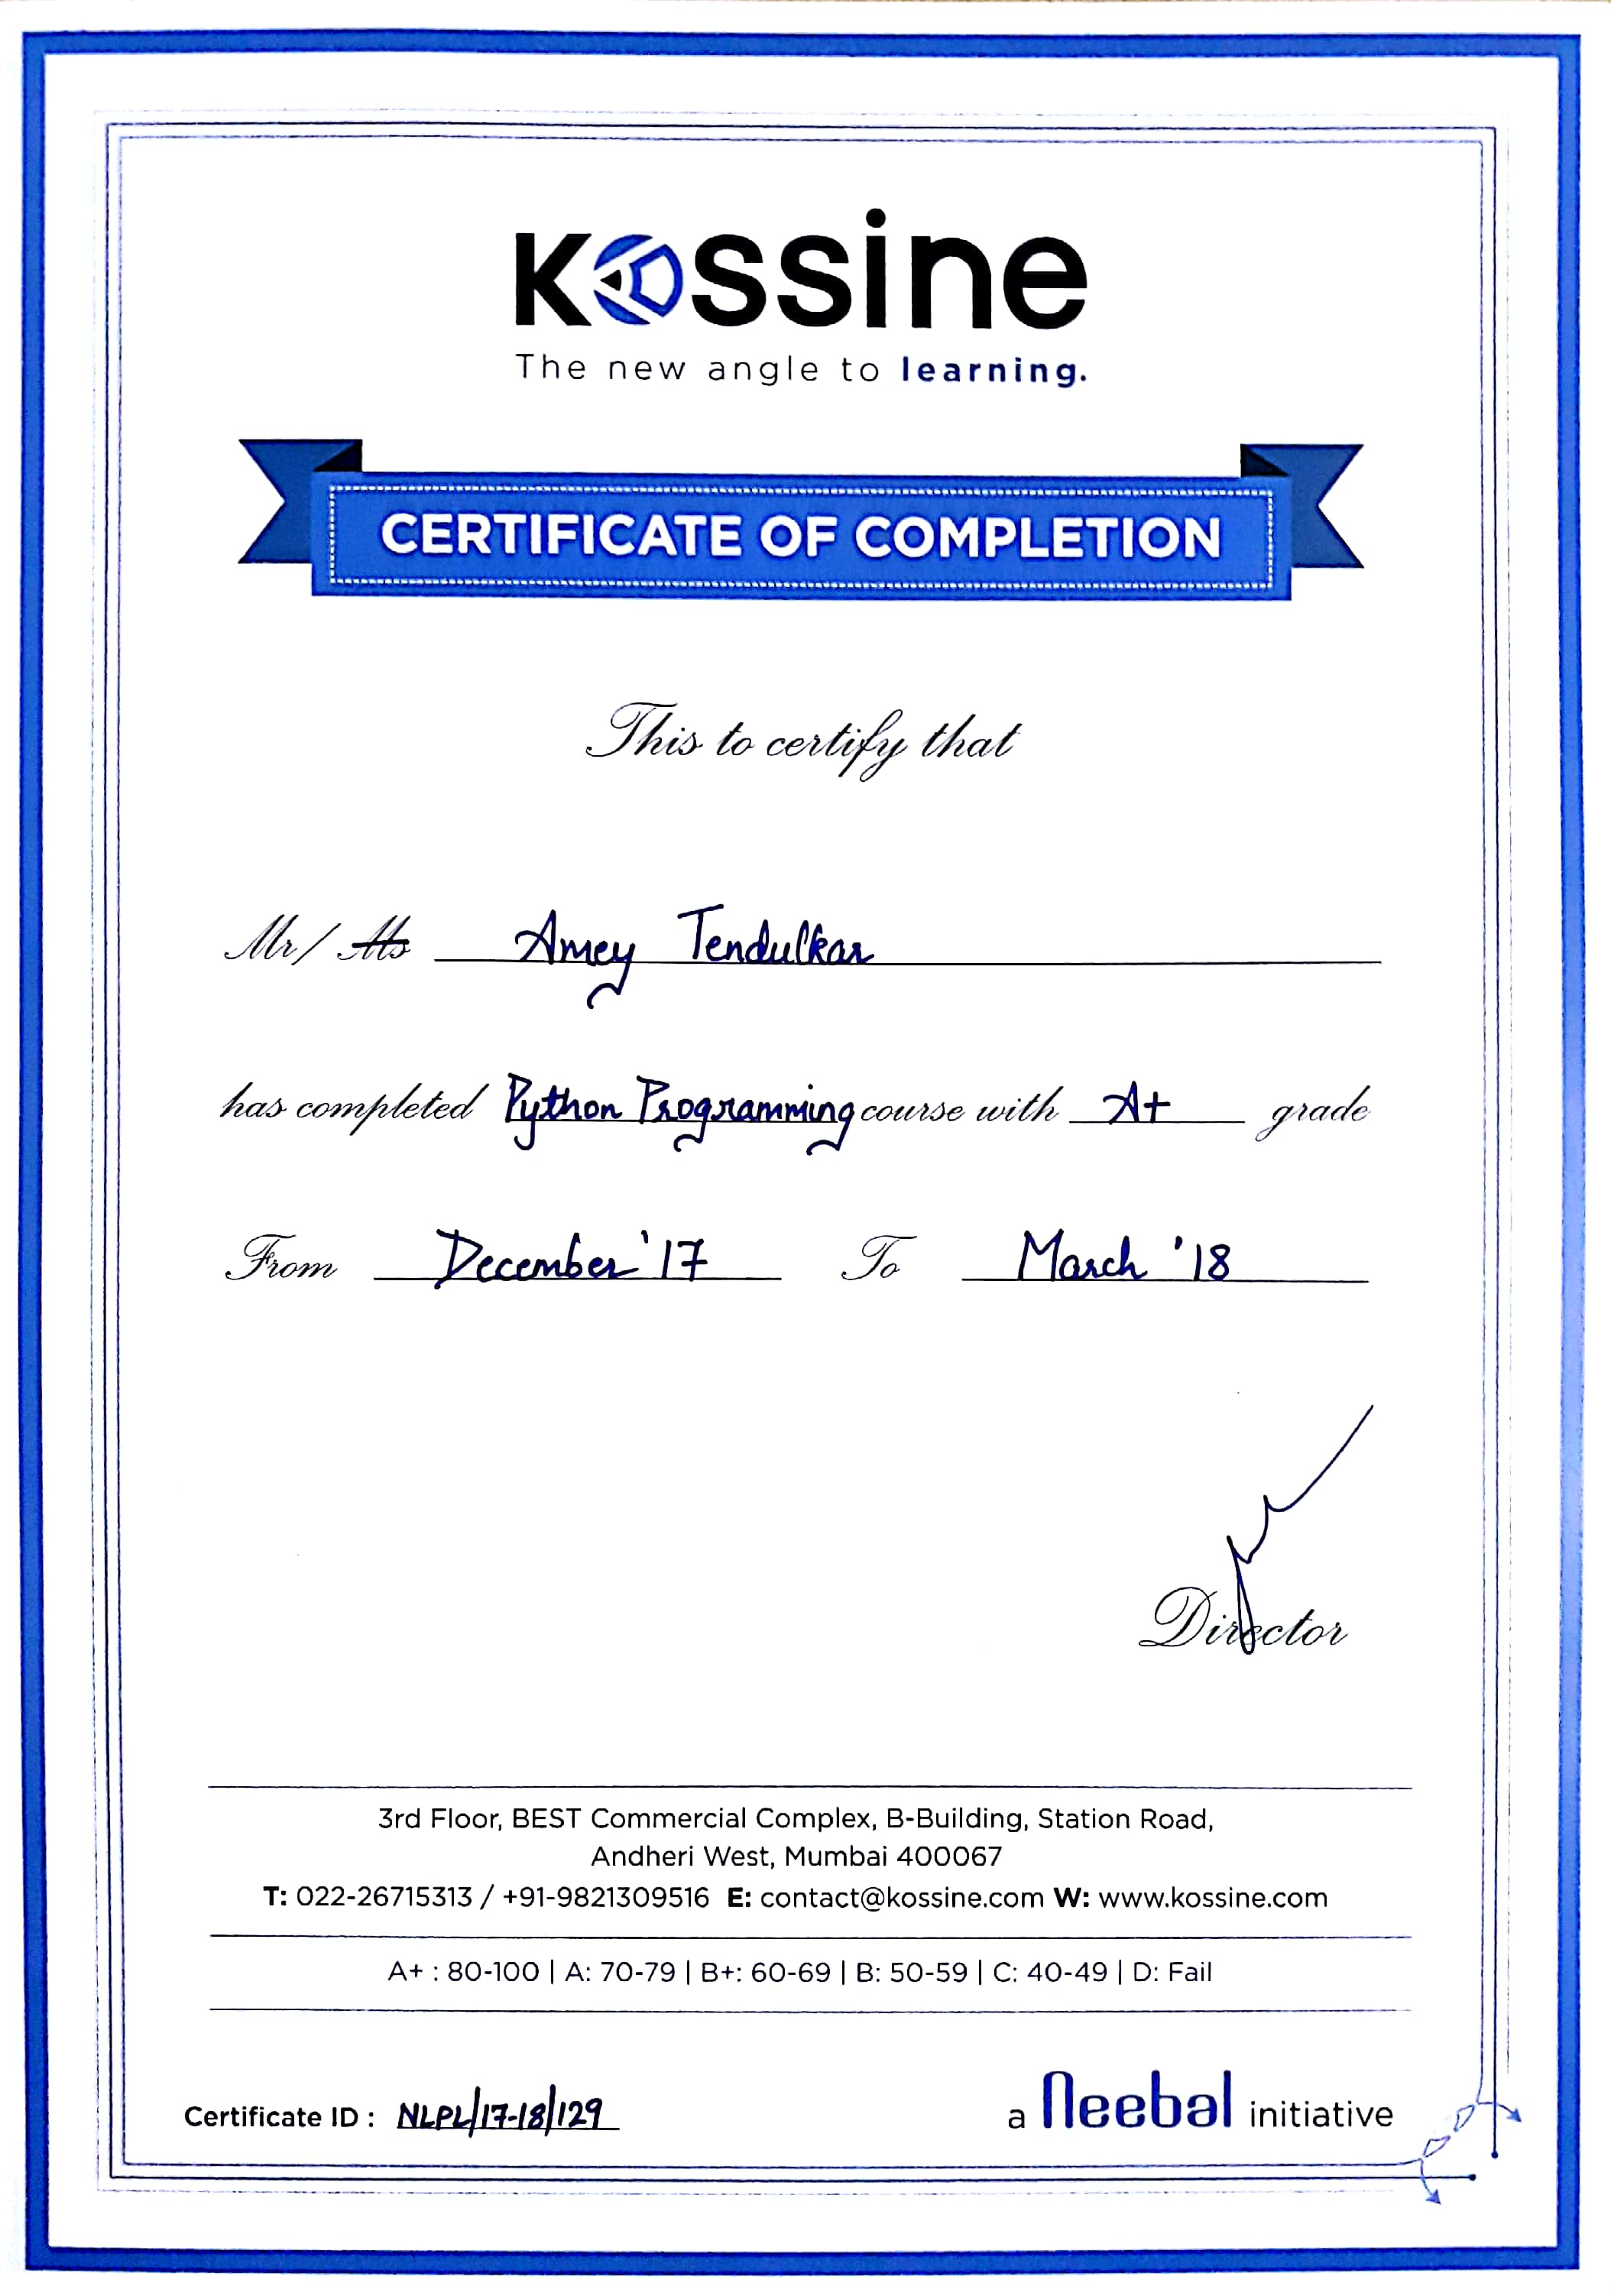 Kossine
The new angle to learning.
CERTIFICATE OF COMPLETION
This to certify that
Mr/ Ms Amey Tendulkar
has completed Python Programming course with A+ grade
From December '17 To March '18
Director
3rd Floor, BEST Commercial Complex, B-Building, Station Road,
Andheri West, Mumbai 400067
T: 022-26715313 / +91-9821309516 E: contact@kossine.com W: www.kossine.com
A+ : 80-100 | A: 70-79 | B+: 60-69 | B: 50-59 | C: 40-49 | D: Fail
Certificate ID : NLPL/17-18/129
a neebal initiative